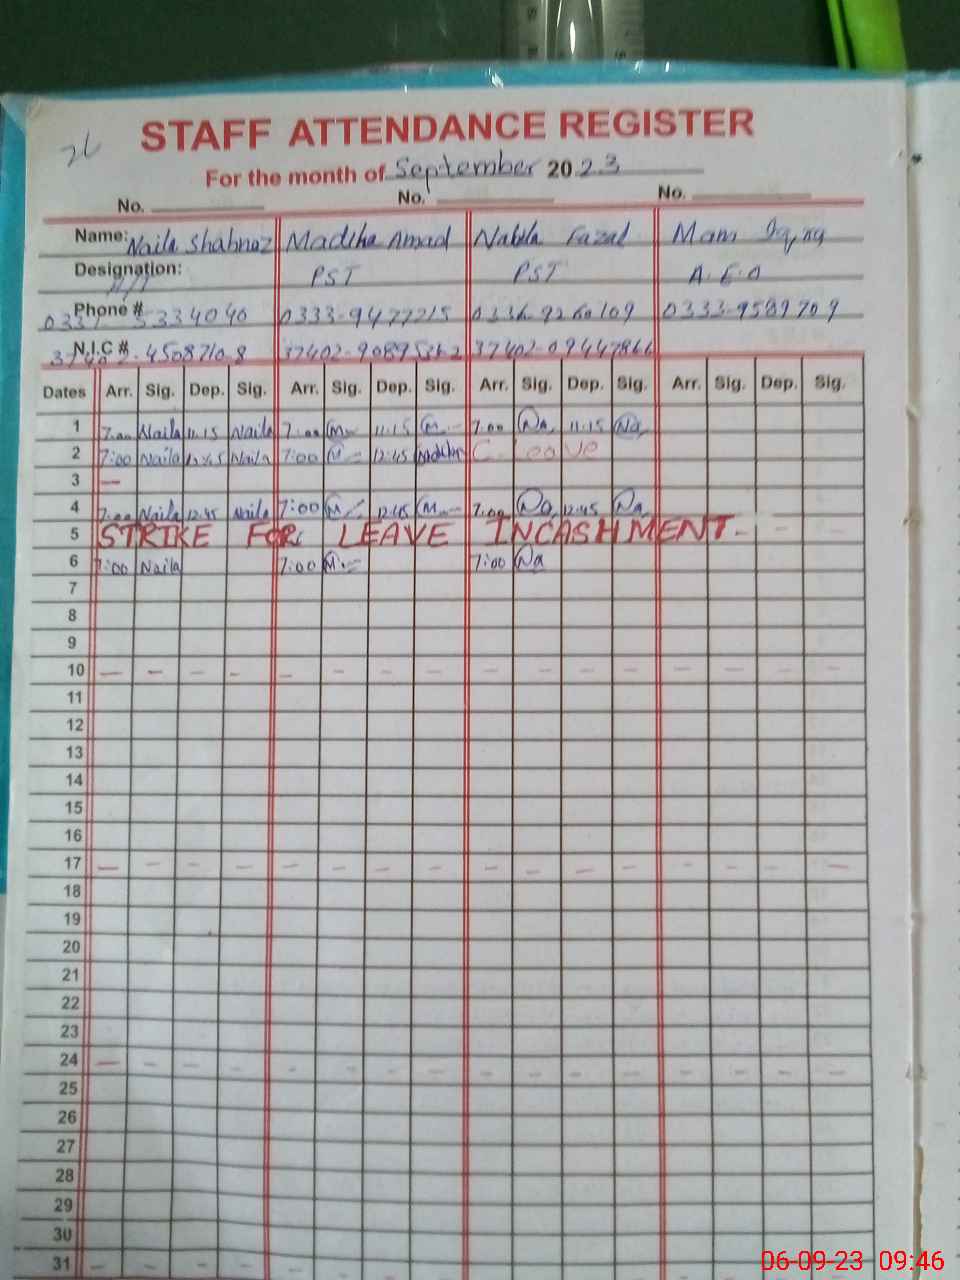 STAFF ATTENDANCE REGISTER
For the month of September 2023
No. No. No.
Name: Naila Shabnaz Madiha Amad Nabila Fazal Mam
Designation: PST PST A.E.O
Phone # 5334040 0333-9477215 0336-9260109 0333-9589709
N.I.C # 4508710-8 37402-9089536-2 37402-09447866
Dates Arr. Sig. Dep. Sig. Arr. Sig. Dep. Sig. Arr. Sig. Dep. Sig. Arr. Sig. Dep. Sig.
1 7:00 Naila 11:15 Naila 7:00 M 11:15 M 7:00 Na 11:15 Na
2 7:00 Naila 12:45 Naila 7:00 M 12:45 Madiha C. Leave
3 —
4 7:00 Naila 12:45 Naila 7:00 M 12:45 M 7:00 Na 12:45 Na
5 STRIKE FOR LEAVE INCASHMENT - - -
6 7:00 Naila 7:00 M 7:00 Na
7
8
9
10 — — — — — — — — — — — — — — — —
11
12
13
14
15
16
17 — — — — — — — — — — — — — — — —
18
19
20
21
22
23
24 — — — — — — — — — — — — — — — —
25
26
27
28
29
30
31 — — — — — — — — — — — — — — — —
06-09-23 09:46